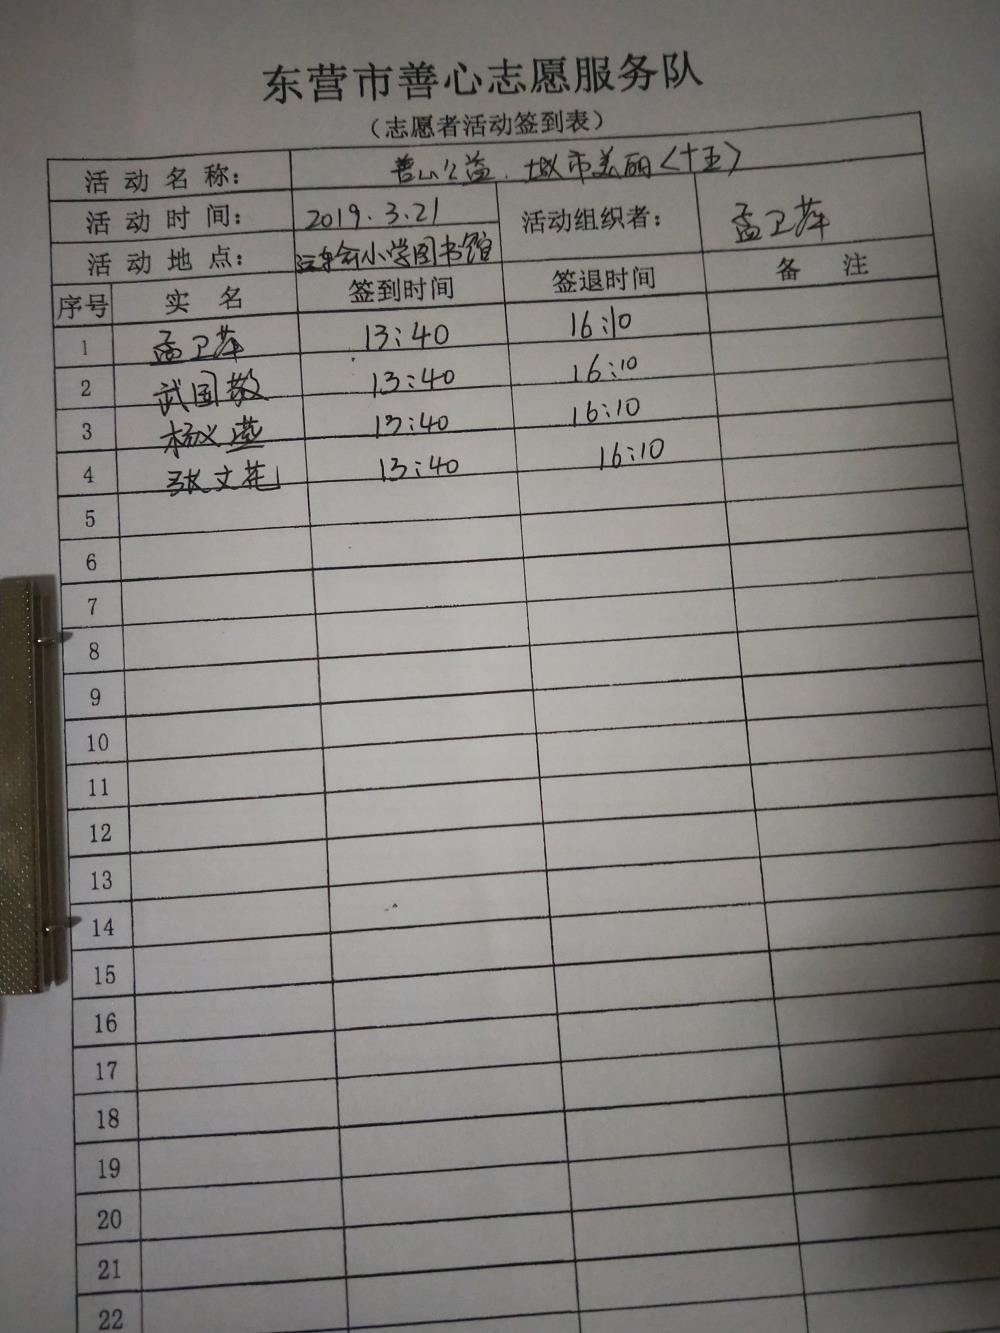 东营市善心志愿服务队
（志愿者活动签到表）
活动名称： 善心公益.城市美丽〈十五〉
活动时间： 2019.3.21 活动组织者： 孟卫萍
活动地点： 小学图书馆
序号 实名 签到时间 签退时间 备注
1 孟卫萍 13:40 16:10
2 武国敬 13:40 16:10
3 杨义燕 13:40 16:10
4 张文花 13:40 16:10
5
6
7
8
9
10
11
12
13
14
15
16
17
18
19
20
21
22